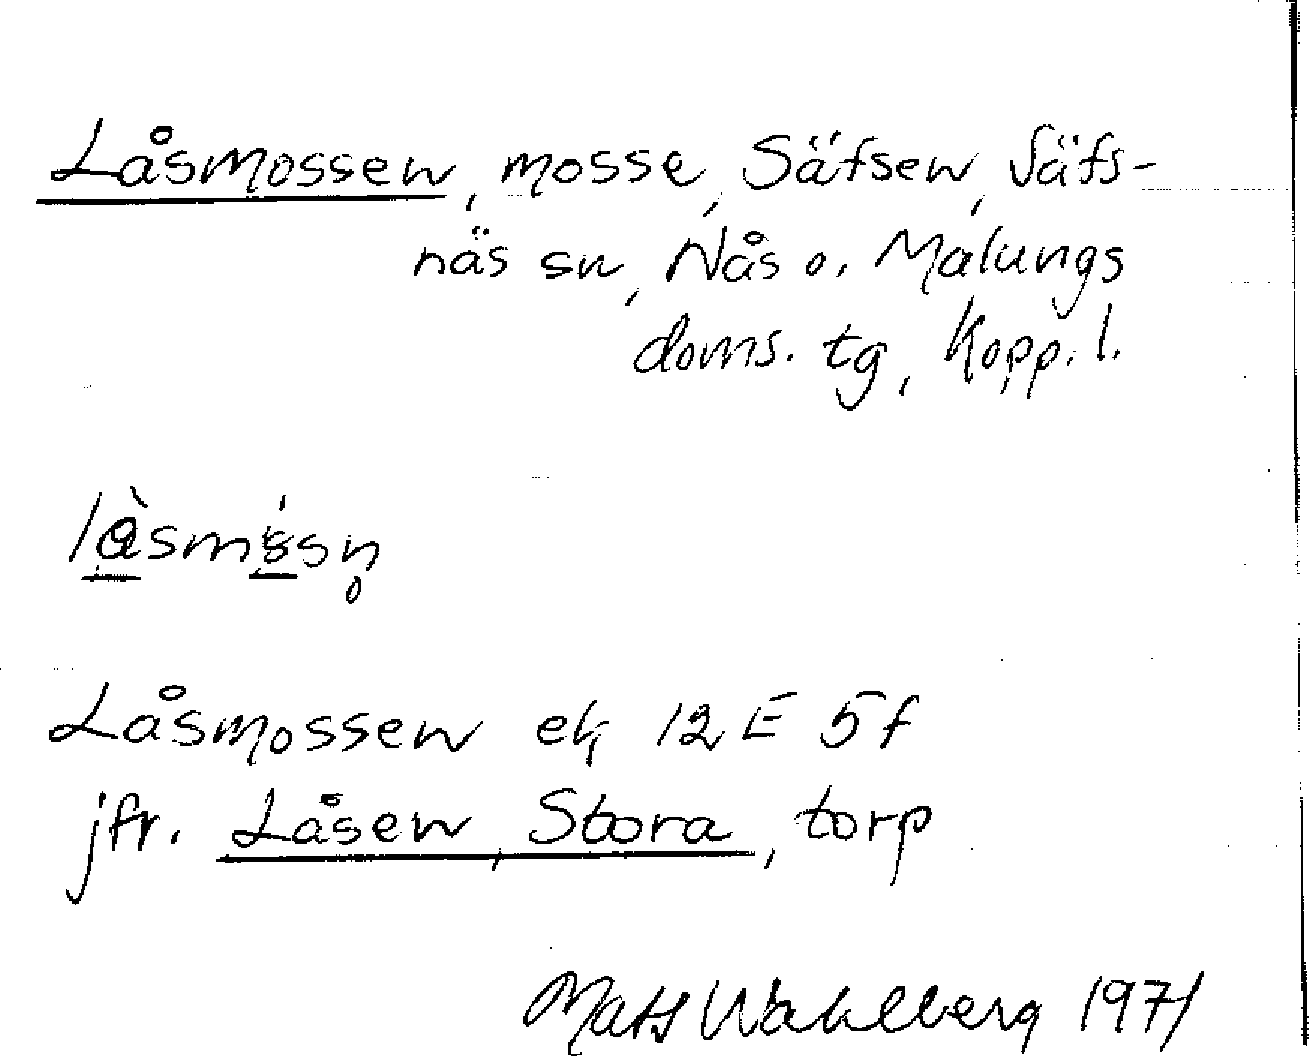 Låsmossen, mosse, Säfsen, Säfs-
näs sn, Nås o. Malungs
doms. tg, Kopp. l.
Låsmossen ek 12 E 5 f
jfr. Låsen, Stora, torp
Mats Wahlberg 1971